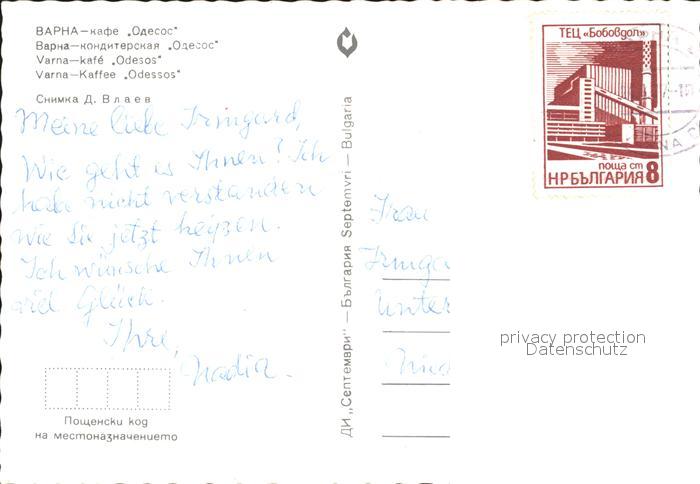 ВАРНА—кафе „Одесос"
Варна—кондитерская „Одесос"
Varna—kafé „Odesos"
Varna—Kaffee „Odessos"
Снимка Д. Влаев
Meine liebe Irmgard,
Wie geht es Ihnen? Ich
habe nicht verstanden
wie Sie jetzt heißen.
Ich wünsche Ihnen
viel Glück.
Ihre,
Nadia.
Пощенски код
на местоназначението
ДИ „Септември" — България Septemvri — Bulgaria
ТЕЦ «Бобовдол»
поща ст
НРБЪЛГАРИЯ 8
Frau
Irmga
Unter
privacy protection
Datenschutz